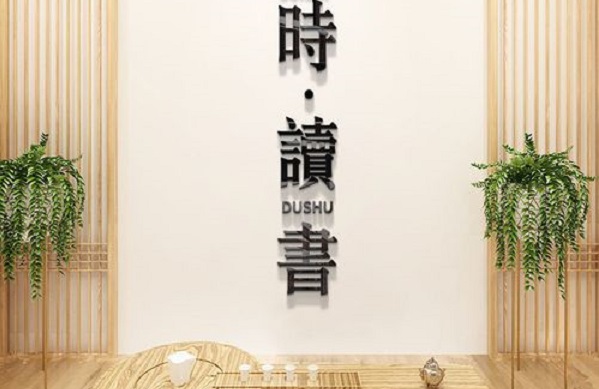 時·讀
DUSHU
書